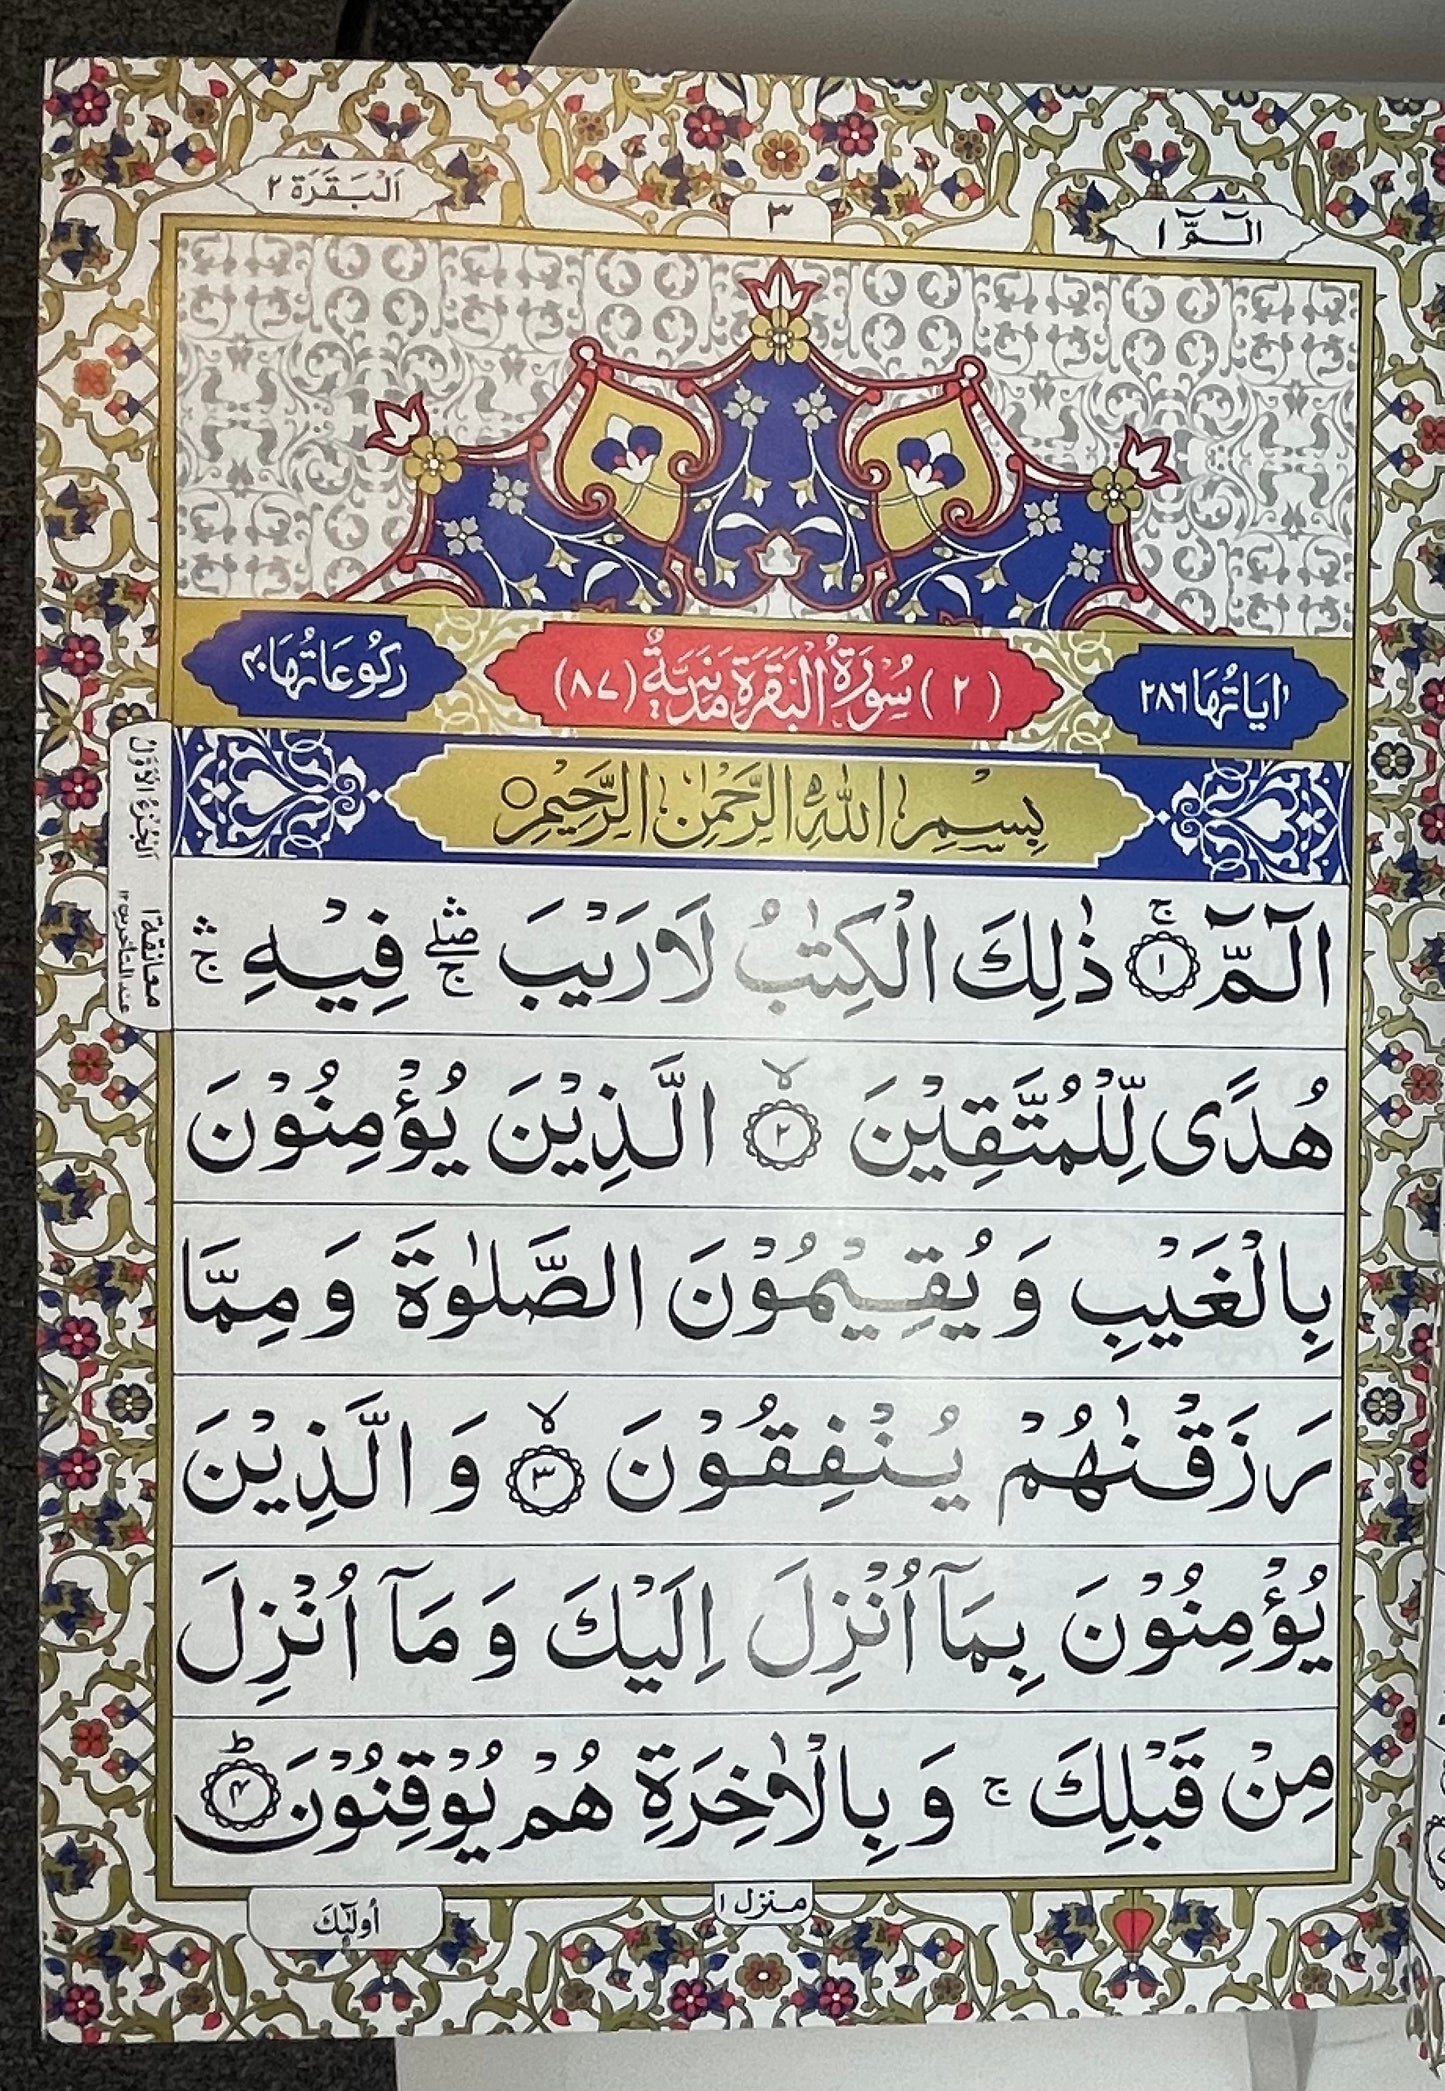 الٓمّٓ ١
٣
اَلْبَقَرَة ٢
اٰيَاتُهَا ٢٨٦
(٢) سُوْرَةُ الْبَقَرَةِ مَدَنِيَّةٌ (٨٧)
رُكُوْعَاتُهَا ۴۰
بِسْمِ اللّٰهِ الرَّحْمٰنِ الرَّحِيْمِ ○
الٓمّٓ ۚ ١ ذٰلِكَ الْكِتٰبُ لَا رَيْبَ ۛۖۚ فِيْهِ ۛۚ
هُدًى لِّلْمُتَّقِيْنَ ۙ ٢ الَّذِيْنَ يُؤْمِنُوْنَ
بِالْغَيْبِ وَ يُقِيْمُوْنَ الصَّلٰوةَ وَ مِمَّا
رَزَقْنٰهُمْ يُنْفِقُوْنَ ۙ ٣ وَ الَّذِيْنَ
يُؤْمِنُوْنَ بِمَآ اُنْزِلَ اِلَيْكَ وَ مَآ اُنْزِلَ
مِنْ قَبْلِكَ ۚ وَ بِالْاٰخِرَةِ هُمْ يُوْقِنُوْنَ ؕ ۴
اَلْجُزْءُ الْاَوَّلُ
معانقة ١
عند المتاخرين ١٢
منزل ١
أُولٰٓئِكَ